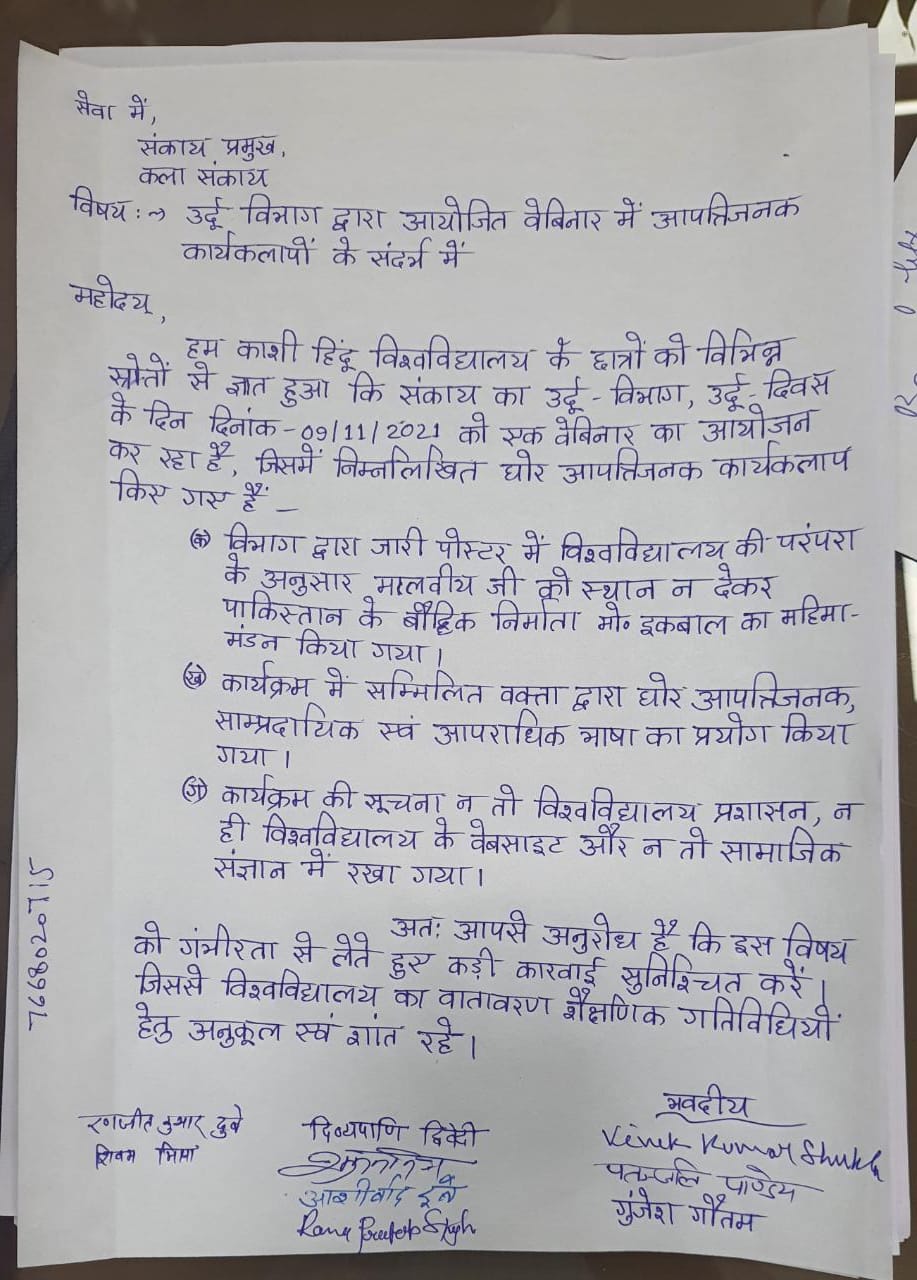 सेवा में,
संकाय प्रमुख,
कला संकाय
विषय :→ उर्दू विभाग द्वारा आयोजित वेबिनार में आपत्तिजनक
कार्यकलापों के संदर्भ में
महोदय,
हम काशी हिंदू विश्वविद्यालय के छात्रों को विभिन्न
स्रोतों से ज्ञात हुआ कि संकाय का उर्दू - विभाग, उर्दू - दिवस
के दिन दिनांक - 09/11/2021 को एक वेबिनार का आयोजन
कर रहा है, जिसमें निम्नलिखित घोर आपत्तिजनक कार्यकलाप
किए गए हैं —
(क) विभाग द्वारा जारी पोस्टर में विश्वविद्यालय की परंपरा
के अनुसार मालवीय जी को स्थान न देकर
पाकिस्तान के बौद्धिक निर्माता मो० इकबाल का महिमा-
मंडन किया गया।
(ख) कार्यक्रम में सम्मिलित वक्ता द्वारा घोर आपत्तिजनक,
साम्प्रदायिक एवं आपराधिक भाषा का प्रयोग किया
गया।
(ग) कार्यक्रम की सूचना न तो विश्वविद्यालय प्रशासन, न
ही विश्वविद्यालय के वेबसाइट और न तो सामाजिक
संज्ञान में रखा गया।
अतः आपसे अनुरोध है कि इस विषय
को गंभीरता से लेते हुए कड़ी कारवाई सुनिश्चित करें।
जिससे विश्वविद्यालय का वातावरण शैक्षणिक गतिविधियों
हेतु अनुकूल एवं शांत रहे।
7668020715
भवदीय
रणजीत कुमार दुबे
शिवम
दिव्यपाणि द्विवेदी
आशीर्वाद दुबे
Rana Singh
Vivek Kumar Shukla
पतञ्जलि पाण्डेय
गुंजेश गौतम